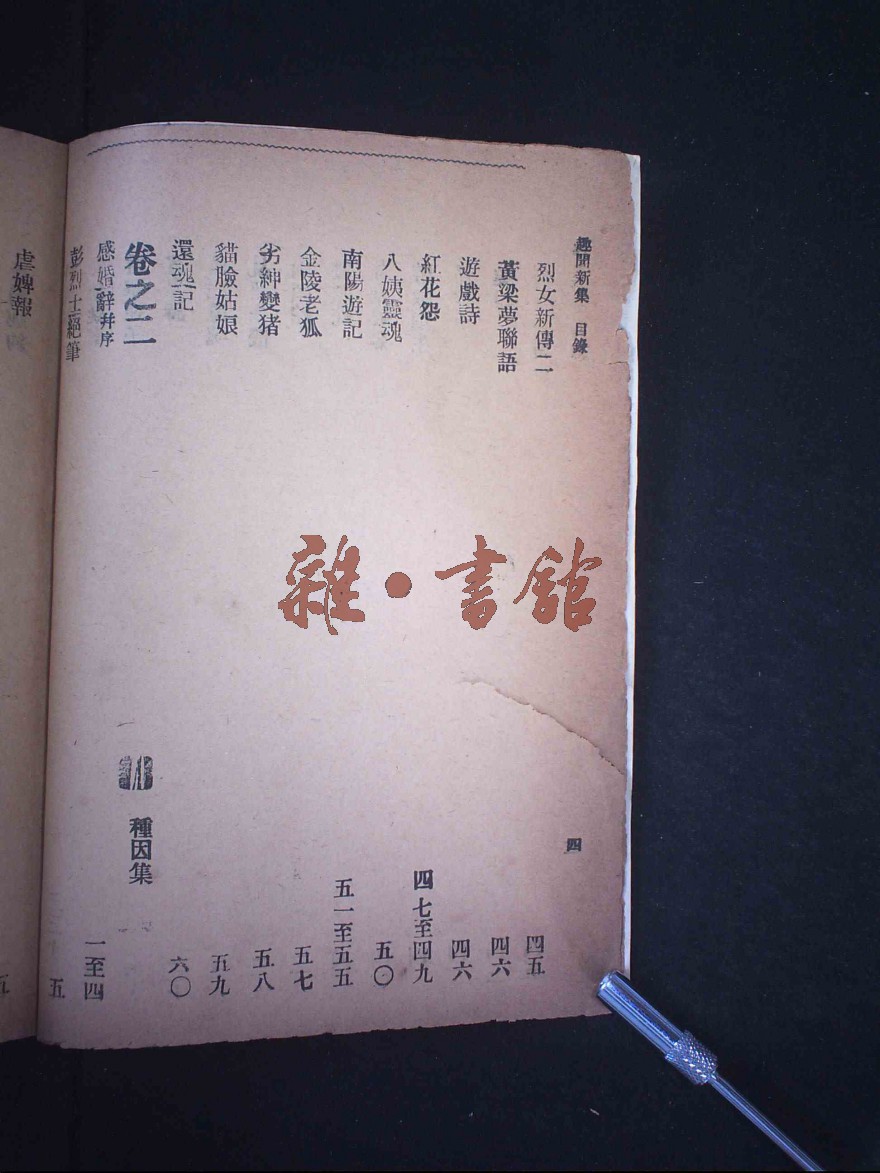 趣聞新集 目錄 四
烈女新傳二 四五
黃梁夢聯語 四六
遊戲詩 四六
紅花怨 四七至四九
八姨靈魂 五〇
南陽遊記 五一至五五
金陵老狐 五七
劣紳變猪 五八
貓臉姑娘 五九
還魂記 六〇
卷之二 種因集
感婚辭幷序 一至四
彭烈士絕筆 五
虐婢報 五
雜·書館